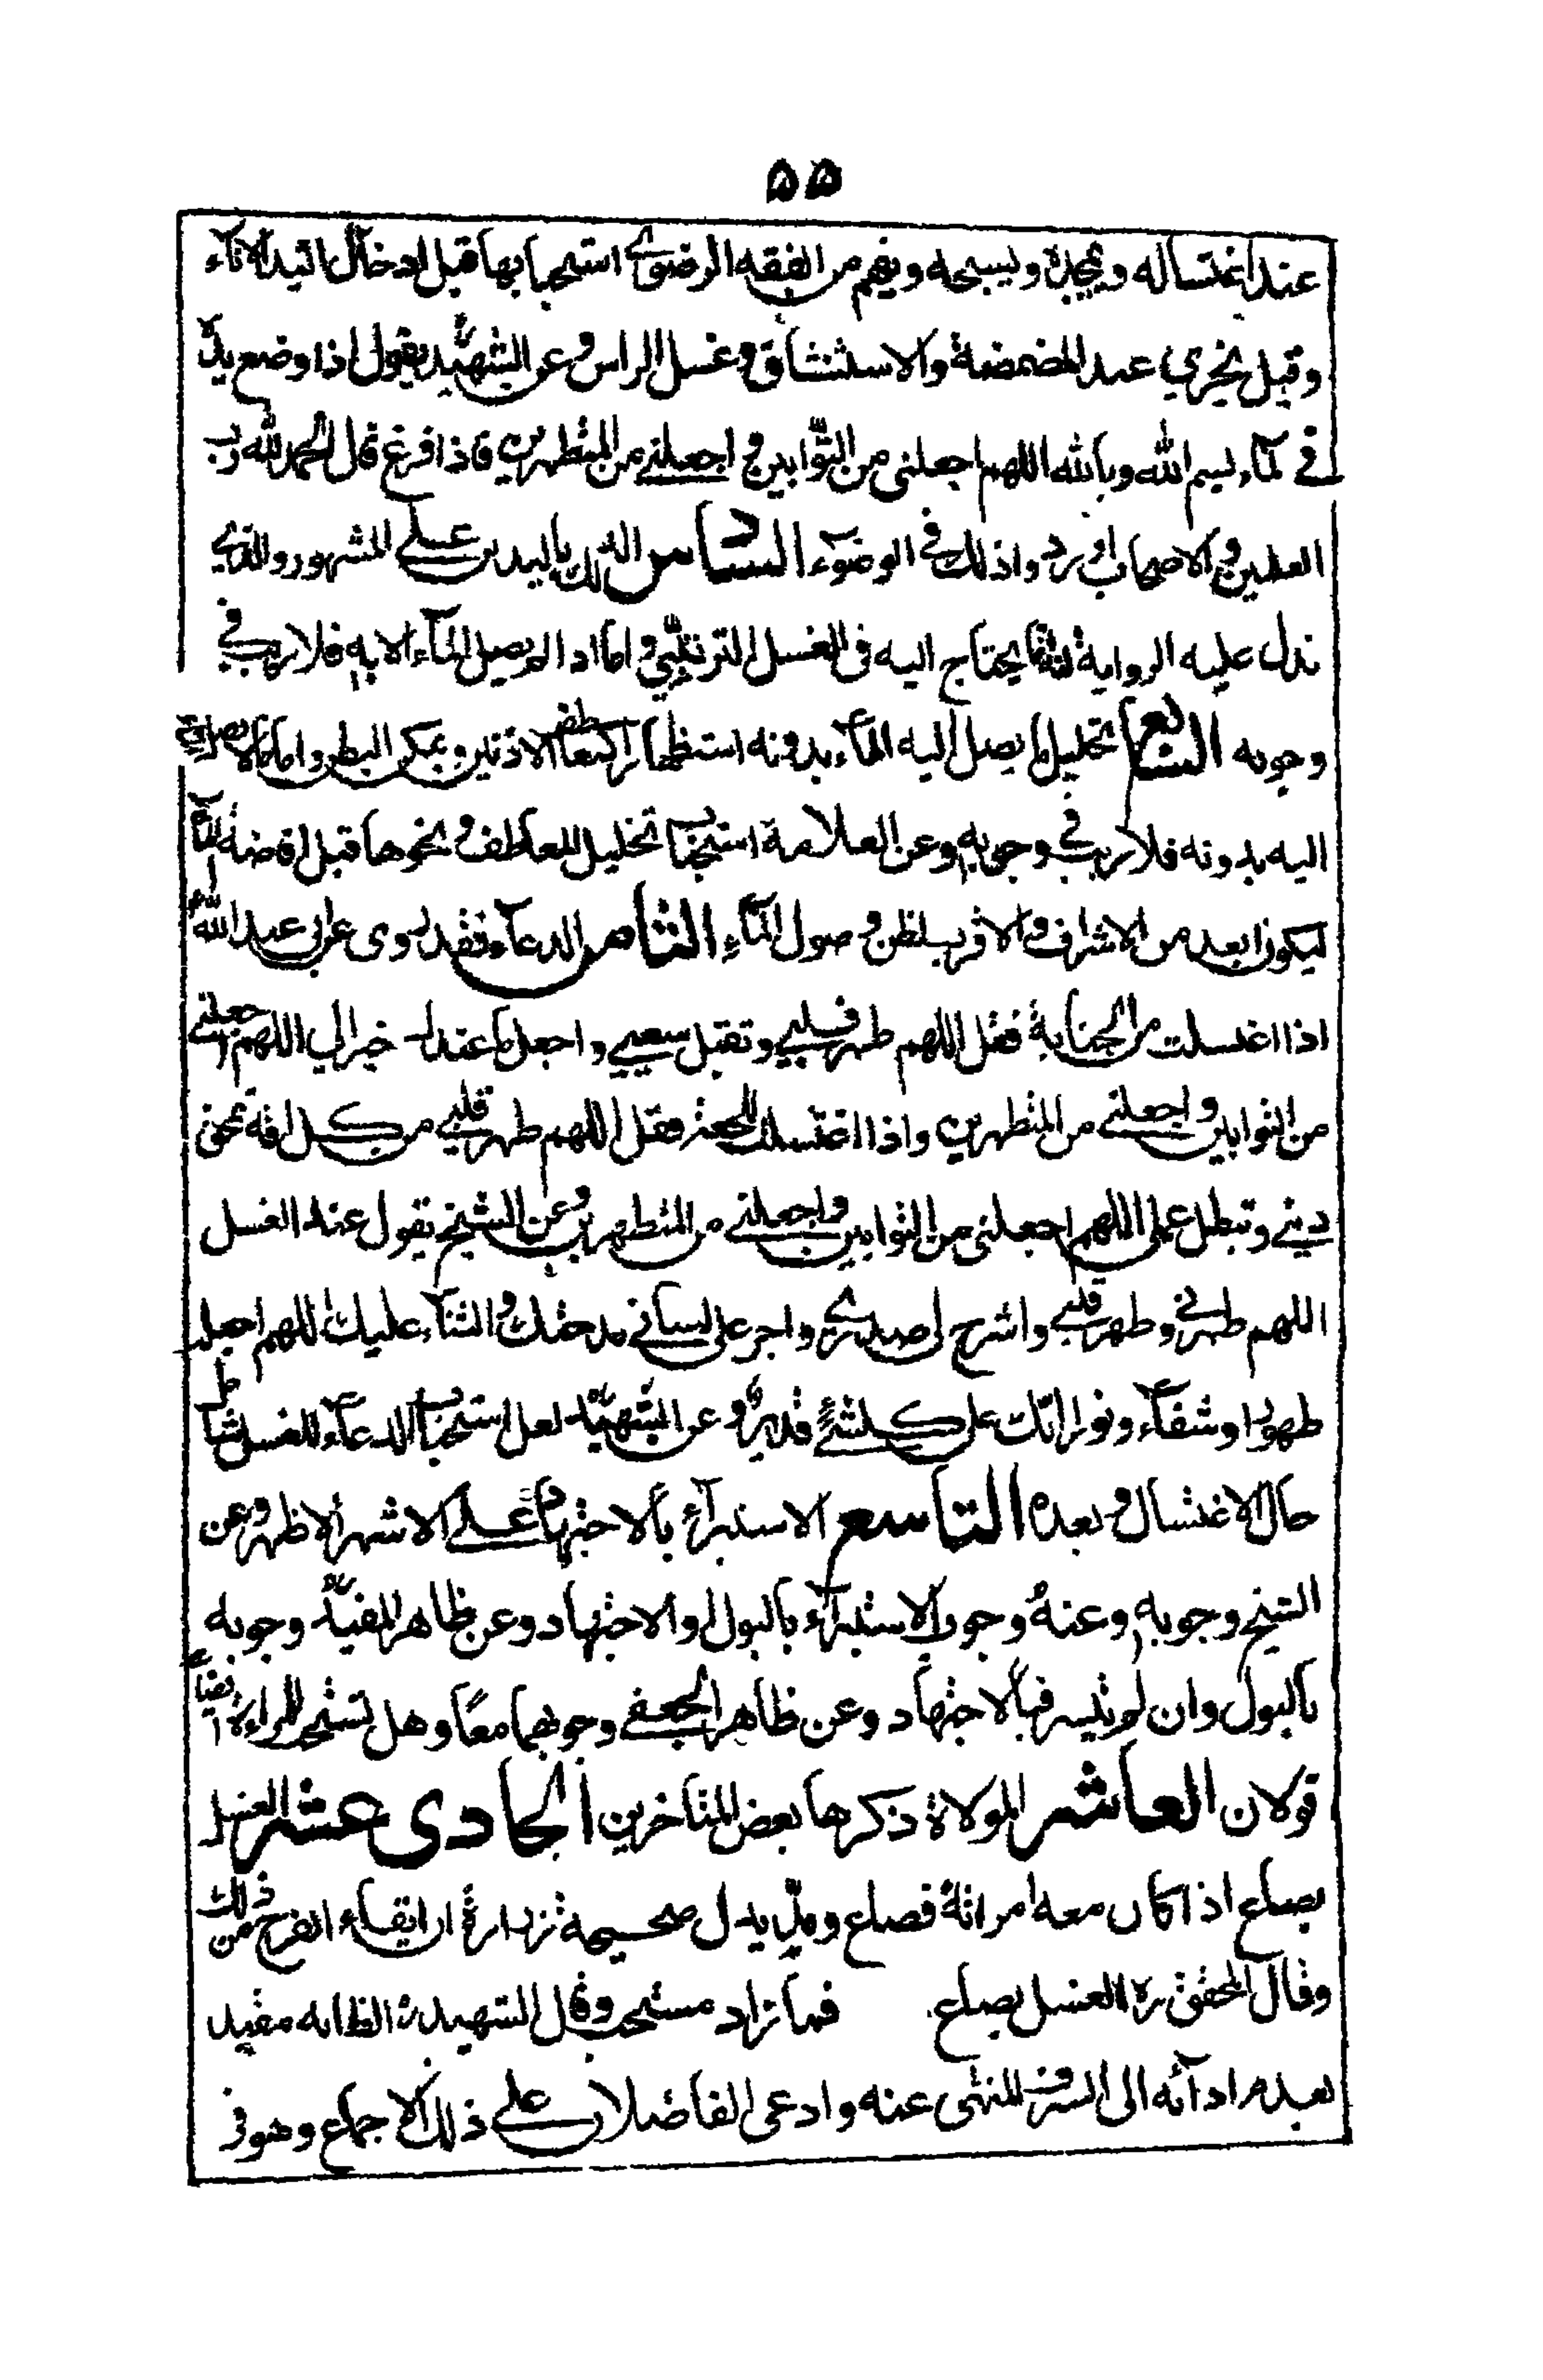 ۵۵
عند اغتساله ويمجده ويسبحه ويفهم من الفقه الرضوي استحبابها قبل ادخال اليد الاناء
وقبل يجري عند المضمضة والاستنشاق وغسل الراس وعن الشهيد يقول اذا وضع يده
في الماء بسم الله وبالله اللهم اجعلنى من التوابين واجعلني من المتطهرين فاذا فرغ قال الحمد لله رب
العلمين والاصحاب اورد واذلك في الوضوء السادس الدلك باليدين علي المشهور والذي
تدل عليه الرواية انما يحتاج اليه فى الغسل الترتيبي واما اذا لم يصل الماء الا به فلا ريب في
وجوبه السابع تخليل ما يصل اليه الماء بدونه استظهارا كمعاطف الاذنين وعكن البطن واما ما لا يصل
اليه بدونه فلا ريب في وجوبه وعن العلامة استحباب تخليل المعاطف ونحوها قبل افاضة الماء
ليكون ابعد من الاشراف والاقرب لظن وصول الماء الثامن الدعاء فقد روى عن ابي عبد الله
اذا اغتسلت من الجنابة فقل اللهم طهر قلبي وتقبل سعيي واجعل ما عندك خيرا لي اللهم اجعلني
من التوابين واجعلني من المتطهرين واذا اغتسلت للجمعة فقل اللهم طهر قلبي من كل افة تمحق
ديني وتبطل عملى اللهم اجعلنى من التوابين واجعلني من المتطهرين وعن الشيخ يقول عند الغسل
اللهم طهرني وطهر قلبي واشرح لي صدري واجر على لساني مدحتك والثناء عليك اللهم اجعله
طهورا وشفاء ونورا انك على كلشئ قدير وعن الشهيد لعل استحباب الدعاء للغسل شامل
حال الاغتسال وبعده التاسع الاستبراء بالاجتهاد علي الاشهر الاظهر وعن
الشيخ وجوبه وعنه وجوب الاستبراء بالبول او الاجتهاد وعن ظاهر المفيد وجوبه
بالبول وان لم يتيسر فبالاجتهاد وعن ظاهر الجعفي وجوبهما معا وهل تستحب للمراءة ايضا
قولان العاشر الموالاة ذكرها بعض المتاخرين الحادى عشر الغسل
بصاع اذا كان معه امراته فصاع ومد يدل صحيحة زرارة ان ايقاء الفرج من ذلك
وقال المحقق ره الغسل بصاع فما زاد مستحب وقال الشهيد ره الظ انه مقيد
بعدم ادائه الى السرف المنهى عنه وادعى الفاضلان علي ذلك الاجماع وهو في